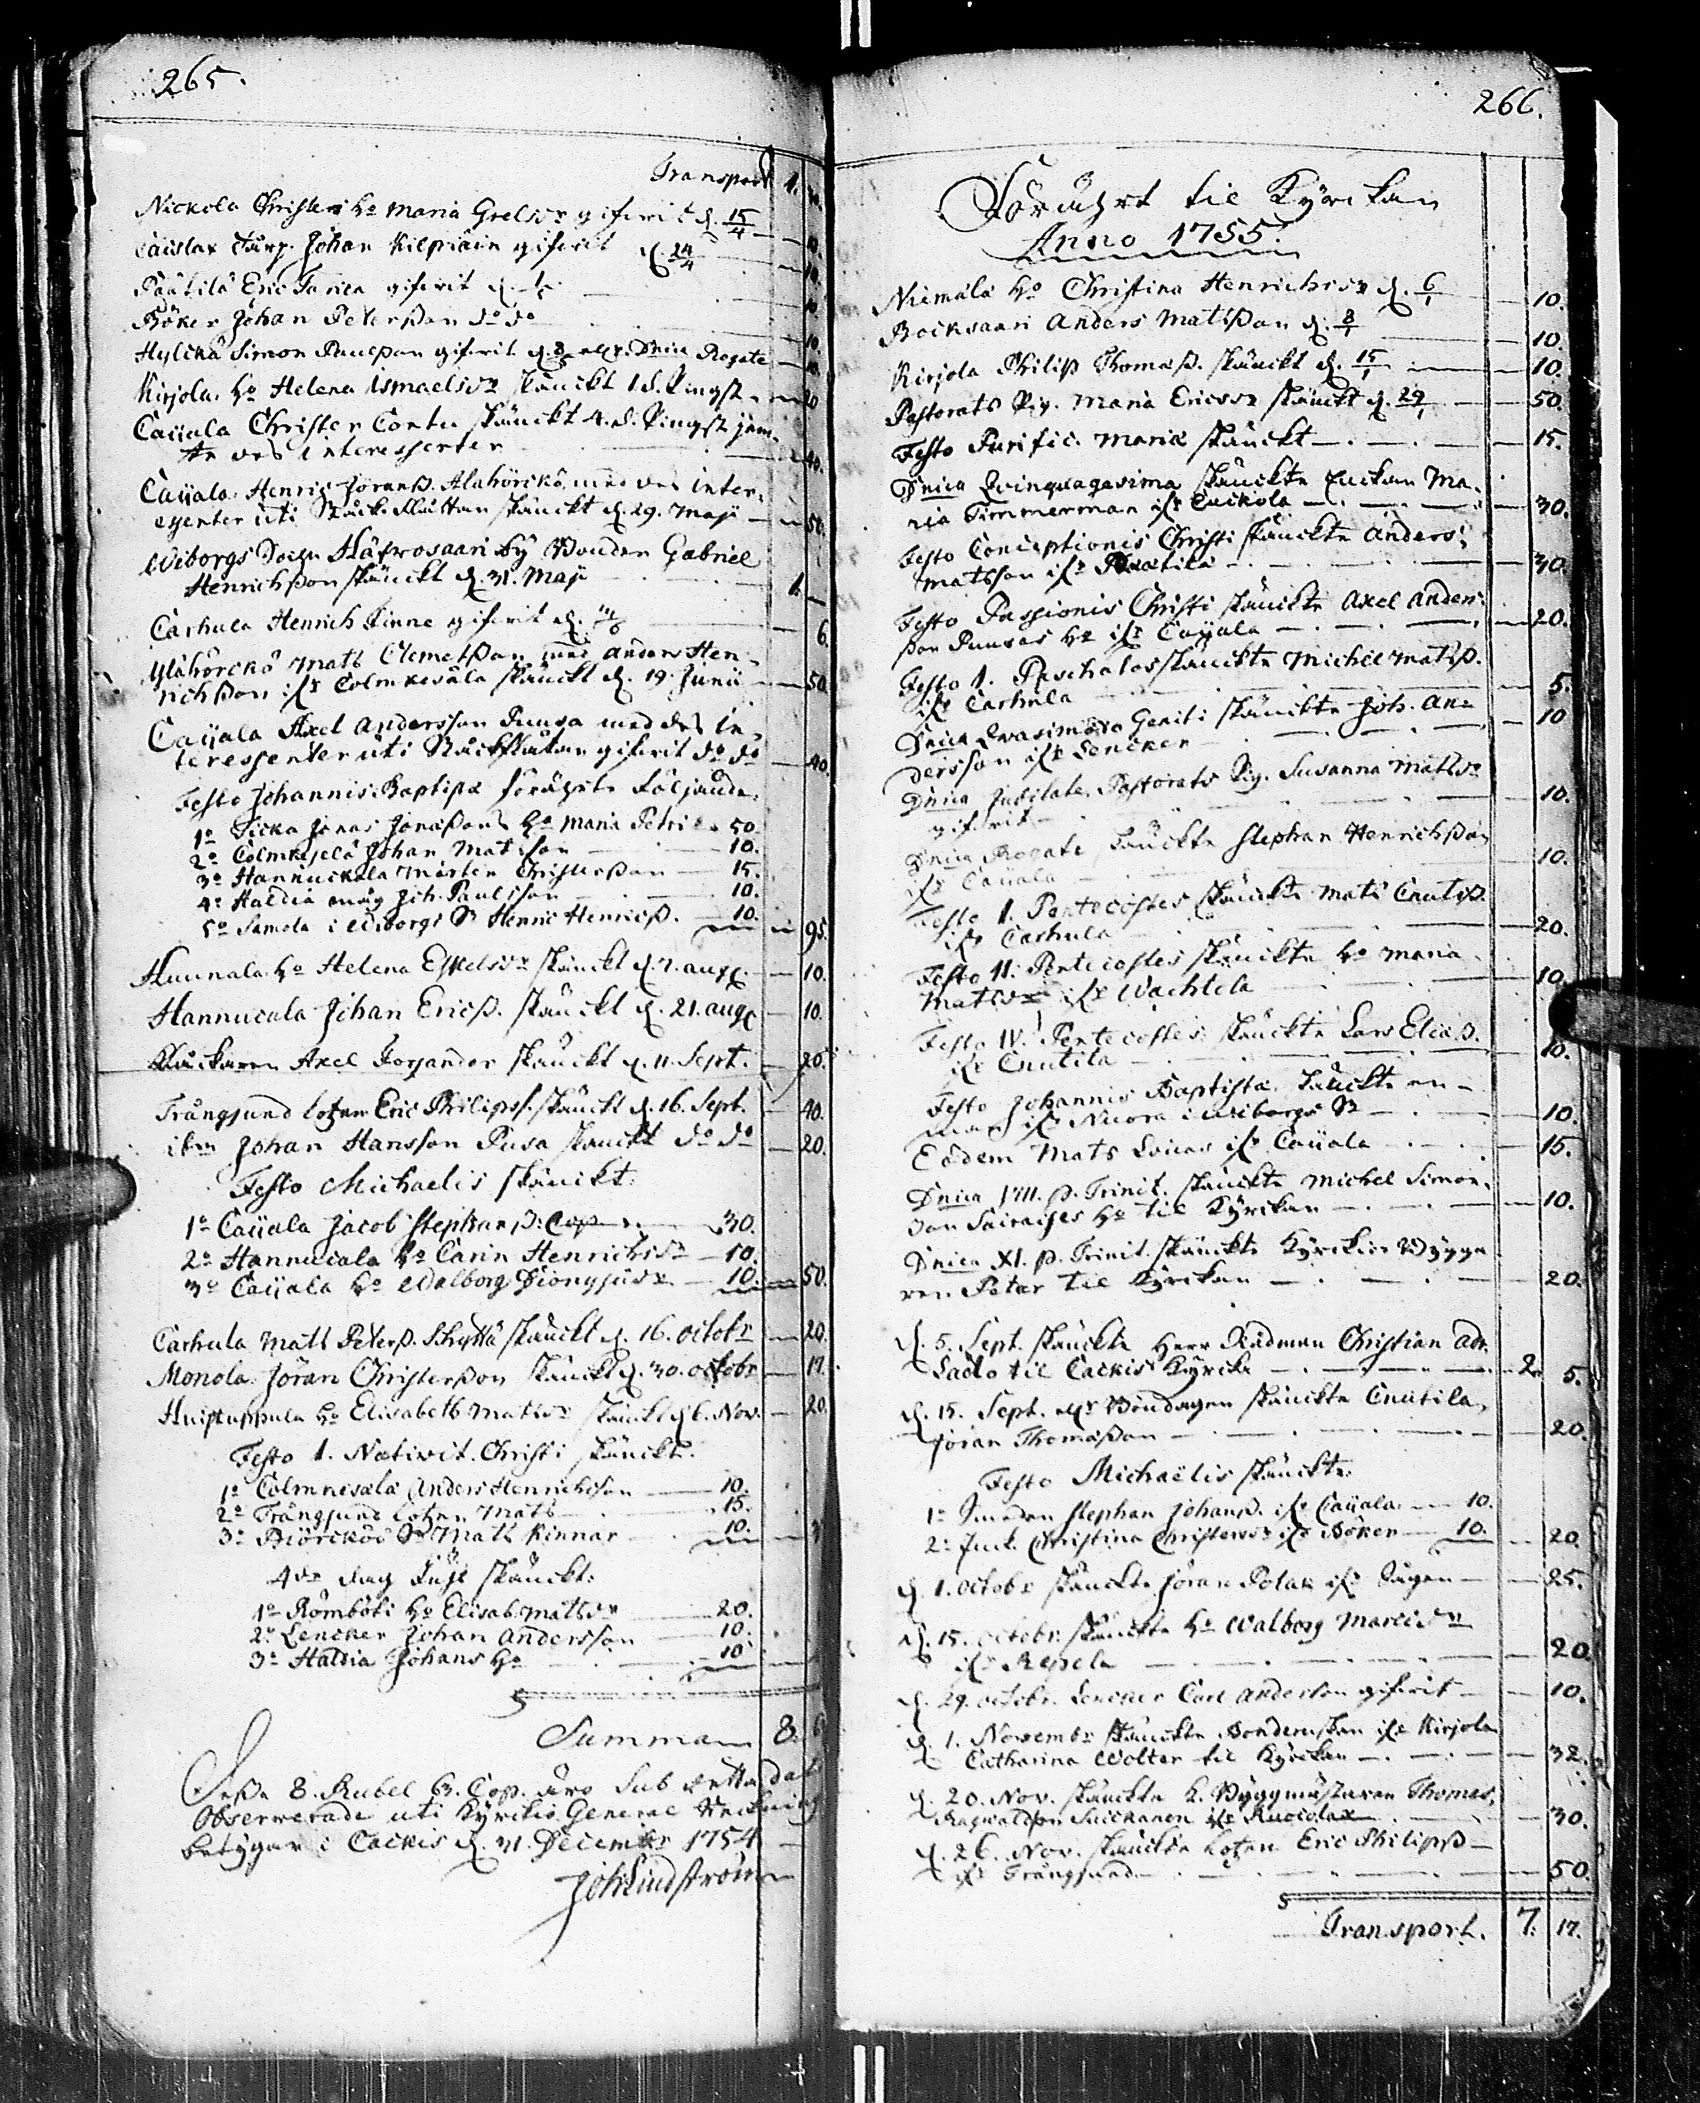 265.
Transport 1.
Nickola Christers ho Maria Grelsdr gifvit d. 15/4
Causlax Turp. Johan Kilpiain gifvit d. 24/4 10.
Päätilä Eric Tarica gifvit d. 10.
Böker Johan Peterßon do do 10.
Hylckä Simon Paulßon gifvit d. 8 Dnica Rogate 10.
Kirjola ho Helena Ismaelsdr skänckt 1 d. Pingst 20
Caijala Christer Contu skänckt 4. d. Pingst jäm-
te des interessenter 40.
Caijala Henric Jöranß. Alahörckö med des inter-
essenter uti skänckt d. 29. Maji 50.
Wiborgs Sochn Häfwosaari by Bonden Gabriel
Henrichßon skänckt d. 31. Maji 1. —
Carhula Henrich Pinne gifvit d. 6.
Ylähörckö Mats Clemetßon med Anders Hen-
richßon ifr Colmkesälä skänckt d. 19. Junii 50.
Caijala Axel Andersson Punsa med des in-
teressenter uti gifvit do do 40.
Festo Johannis Baptistæ förährte följande.
1o Ticka Jonas Jonaßons ho Maria Petri 50.
2o Colmkesälä Johan Matsson 10.
3o Hannuckala Mårten Christerßon 15.
4o Haldia måg Joh. Paulsson 10.
5o Samola i Wiborgs Sn Henric Henricß. 10. 95.
Hunnala ho Helena Eskelsdr skänckt d. 7. Aug. 10.
Hannucala Johan Ericß. skänckt d. 21. Aug. 10.
Klåckaren Axel Forsander skänckt d. 11. Sept. 20.
Trångsund lotzen Eric Philipss. skänckt d. 16. Sept. 40.
item Johan Hansson Pusa skänckt do do 20.
Festo Michaelis skänckt.
1o Caijala Jacob Stephanß. Cop 30.
2o Hannucala ho Carin Henrichsdr 10.
3o Caijala ho Walborg Dionysiidr 10. 50.
Carhula Mats Peterß. Skyttä skänckt d. 16. Octobr 20.
Monola Jöran Christerßon skänckt d. 30. Octobr 17.
ho Elisabeth Matsdr skänckt d. 6. Nov. 20.
Festo 1. Nativit. Christi skänckt.
1o Colmkesälä Anders Henrichsson 10.
2o Trångsund lotzen Mats 15.
3o Biörckö Sn Mats Kinnar 10.
4de dag Juhl skänckt.
1o Römböli ho Elisab. Matsdr 20.
2o Lencker Johan Andersson 10.
3o Haldia Johans ho 10
Summa 8.
Deße 8. Rubel 63. Cop. äro sub dato
Observerade uti Kyrckio General Räckning
betygar i Cackis d. 31. Decembr 1754
Joh Lindström
266.
Förährt til Kyrckan
Anno 1755.
Niemälä ho Christina Henrichsdr d. 6/1 10.
Bocksaari Anders Matsßon d. 8/1 10.
Kirjola Philip Thomaß. skänckt d. 15/1 10.
Pastorats Pig. Maria Ericsdr skänckt d. 29/1 50.
Festo Purific. Mariæ skänckt 15.
Dnica Quinquagesima skänckte Enckan Ma-
ria Timmerman ifr Cuckola 30.
Festo Conceptionis Christi skänckte Anders
Matsson ifr Päätilä 30.
Festo Passionis Christi skänckte Axel Anders-
ßon Punsas ho ifr Caijala 20.
Festo 1. Paschatos skänckte Michel Matsß.
ifr Carhula 5.
Dnica Quasimodo Geniti skänckte Joh. An-
dersson ifr Lencker 10
Dnica Jubilate. Pastorats Pig. Susanna Matsdr
gifvit 10.
Dnica Rogate skänckte Stephan Henrichßon
ifr Caijala 10.
Festo 1. Pentecostes skänckte Mats Cnutß.
ifr Carhula 20.
Festo II. Pentecostes skänckte ho Maria
Matsdr ifr Wachtela 10.
Festo IV. Pentecostes skänckte Lars Eliaß.
ifr Cnutila 10.
Festo Johannis Baptistæ skänckte en
man ifr Nuora i Wiborgs Sn 10.
Eodem Mats Lucas ifr Caijala 15.
Dnica VIII. p. Trinit. skänckte Michel Simon-
son Sairaises ho til Kyrckan 10.
Dnica XI. p. Trinit. skänckte Kyrckio Bygga-
ren Petar til Kyrckan 20.
d. 5. Sept. skänckte Herr Rådman Christian Adr.
Lado til Cackis Kyrcka 2. 5.
d. 15. Sept. Böndagen skänckte Cnutila
Jöran Thomaßon 20.
Festo Michaëlis skänckte.
1o Smeden Stephan Johanß. ifr Caijala 10.
2o Jnck. Christina Christersdr ifr Böker 10. 20.
d. 1. Octobr skänckte Jöran Polak ifr Sågen 25.
d. 15. Octobr skänckte ho Walborg Marcidr
ifr Repola 20.
d. 29. Octobr. Lencker Carl Anderson gifvit 10.
d. 1. Novembr skänckte Bondenskan ifr Kirjola
Catharina Wolter til Kyrckan 32.
d. 20. Nov. skänckte k. Byggmästaren Thomas
Ragwaldson Suickanen ifr Ruocolax 30.
d. 26. Nov. skänckte Lotzen Eric Philipß
ifr Trångsund 50.
Transport. 7. 17.